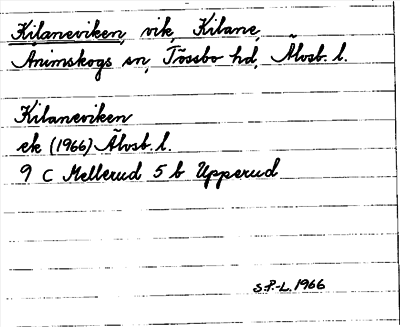 Kilaneviken, vik, Kilane,
Ånimskogs sn, Tössbo hd, Älvsb. l.
Kilaneviken
ek (1966) Älvsb. l.
9 C Mellerud 5 b Upperud
S.P.-L. 1966